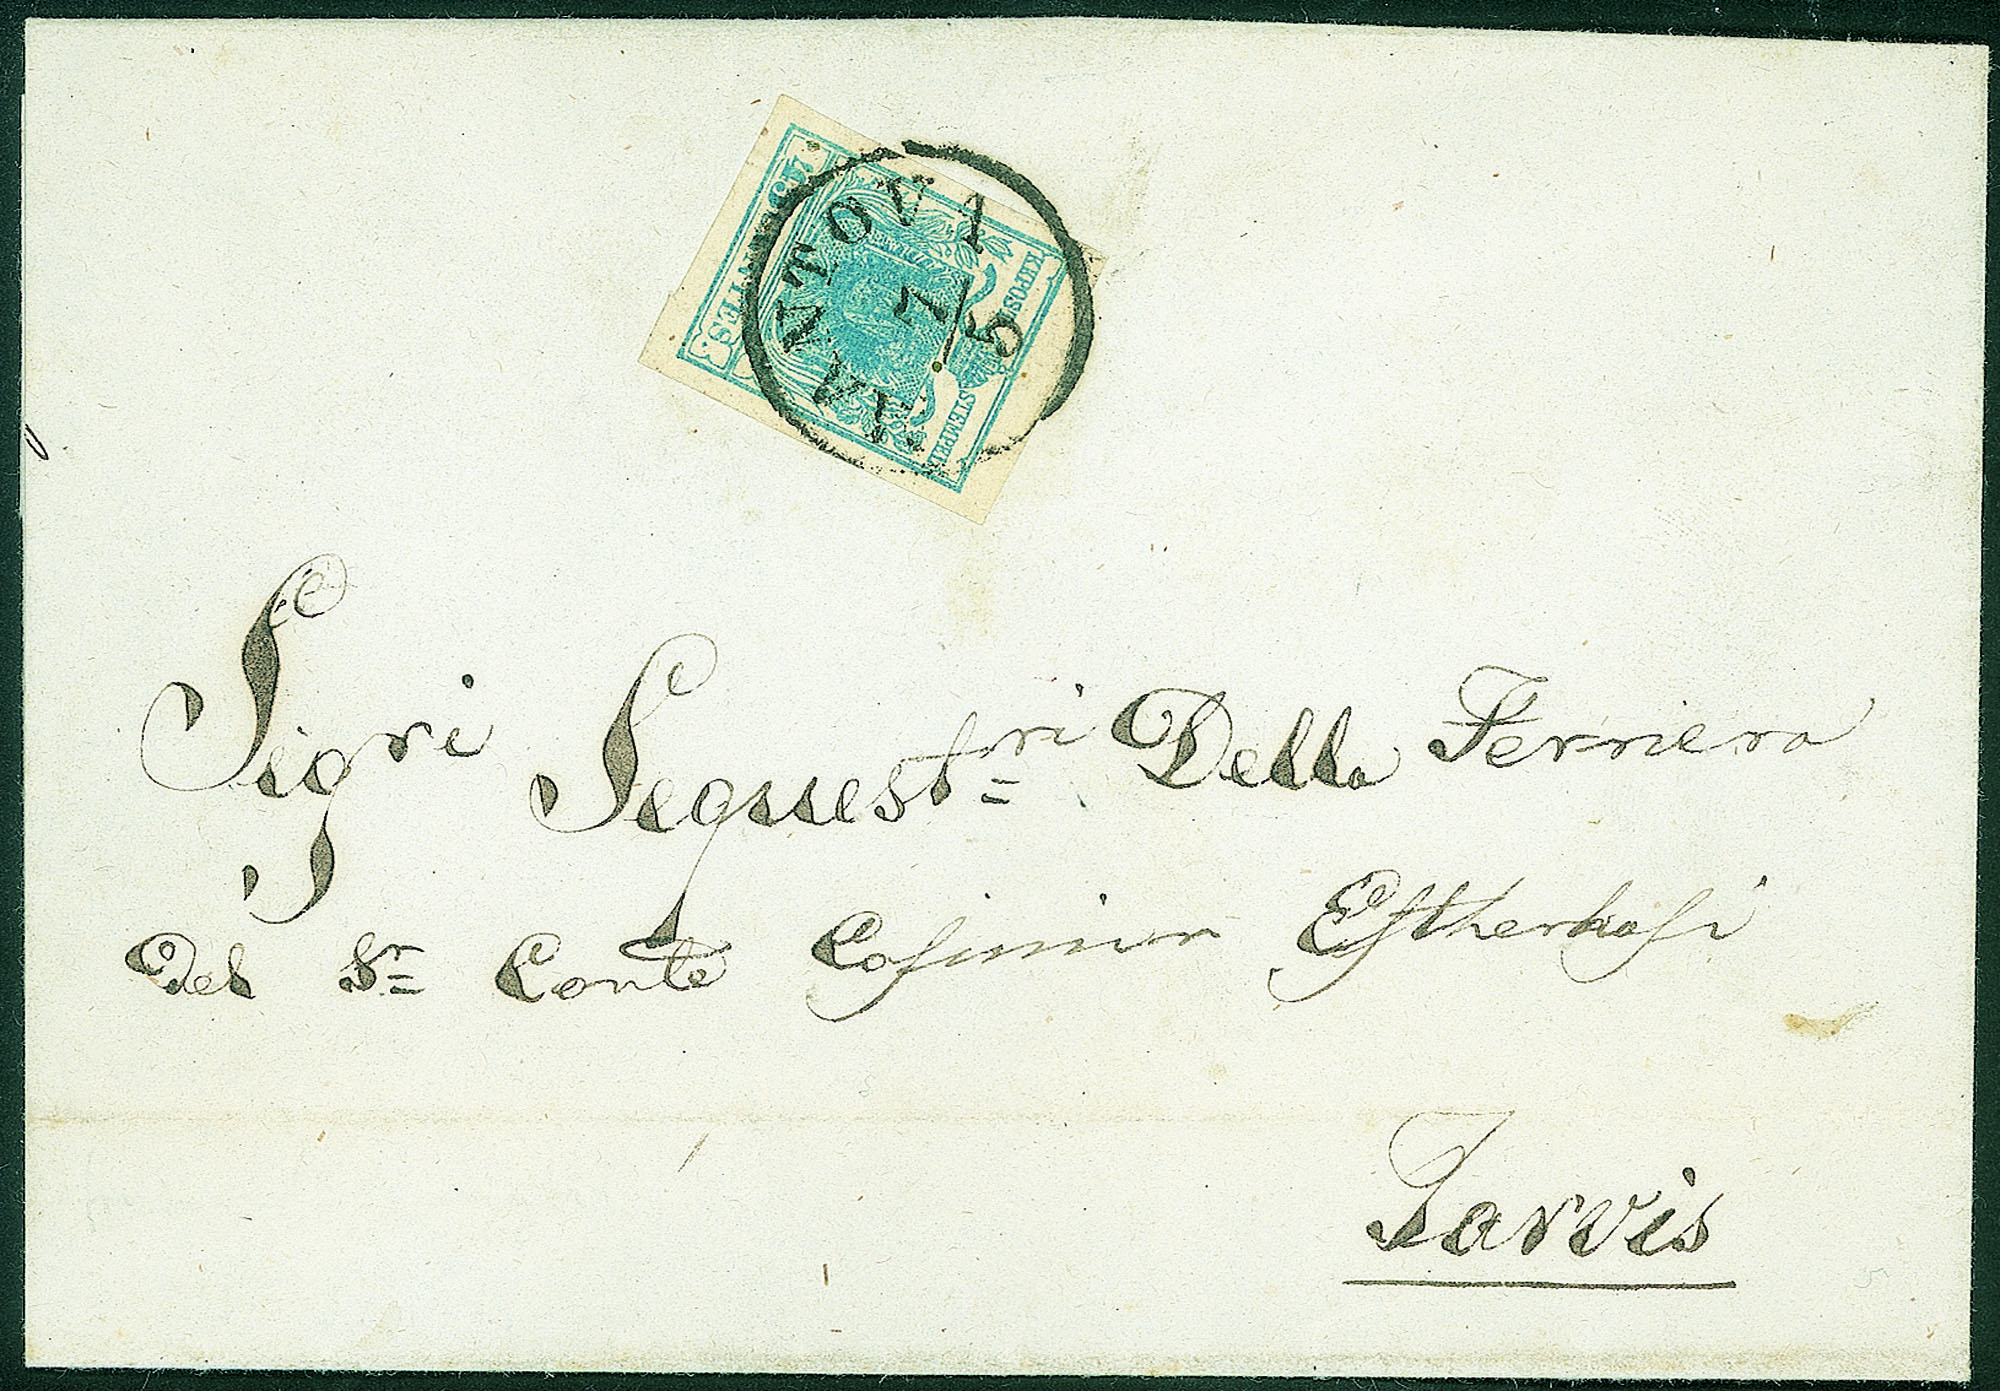 KKPOST-STEMPEL
45 CENTES
MANTOVA
7/5
Sigri Sequestri Della Ferriera
Del Sr Conte Casimir Estherhasi
Tarvis